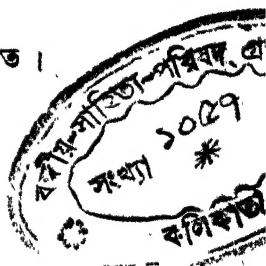 ত ।
বঙ্গীয়-সাহিত্য-পরিষদ, গ্র
সংখ্যা ১০৫৭
কলিকাতা